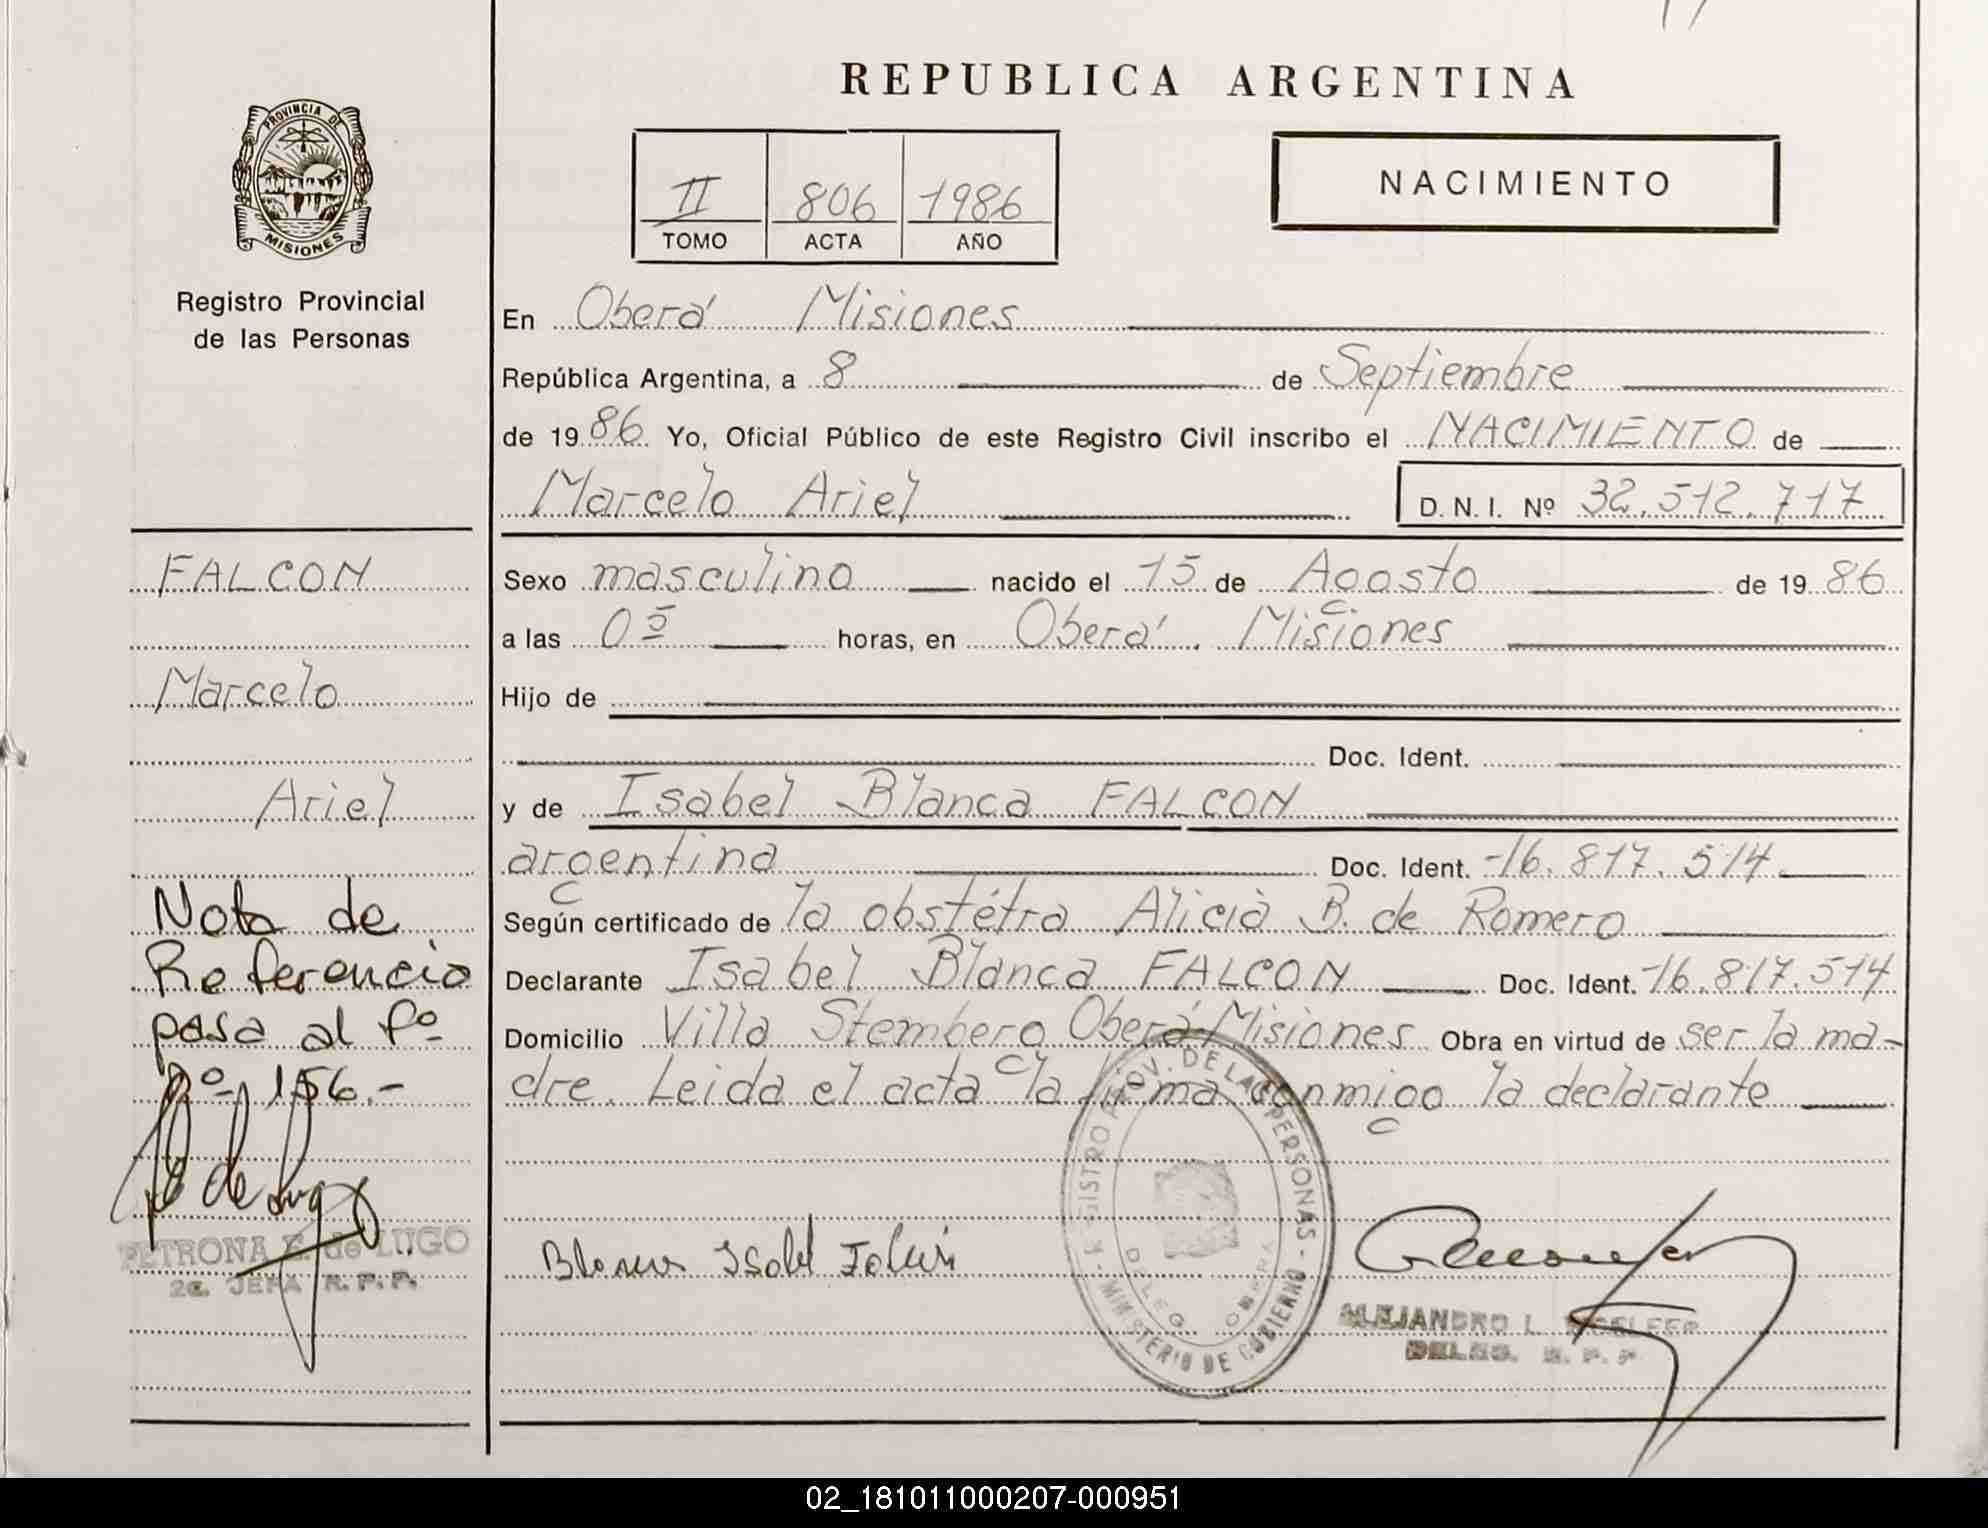 REPUBLICA ARGENTINA
PROVINCIA DE
MISIONES
Registro Provincial
de las Personas
II 806 1986
TOMO ACTA AÑO
NACIMIENTO
En Oberá Misiones
República Argentina, a 8 de Septiembre
de 1986 Yo, Oficial Público de este Registro Civil inscribo el NACIMIENTO de
Marcelo Ariel D.N.I. Nº 32.512.717
Sexo masculino nacido el 15 de Agosto de 1986
a las 05 horas, en Oberá, Misiones
Hijo de
Doc. Ident.
y de Isabel Blanca FALCON
argentina Doc. Ident. -16.817.514.
Según certificado de la obstétra Alicia B. de Romero
Declarante Isabel Blanca FALCON Doc. Ident. -16.817.514
Domicilio Villa Stemberg Oberá Misiones Obra en virtud de ser la ma-
dre. Leida el acta la firma conmigo la declarante
FALCON
Marcelo
Ariel
Nota de
Referencia
pasa al fº
Nº 156.-
PETRONA E. de LUGO
2a. JEFA R.P.P.
Blanca Isabel Falcón
REGISTRO PROV. DE LAS PERSONAS - MINISTERIO DE GOBIERNO -
DELEG. OBERA
ALEJANDRO L.
DELEG. R.P.P
02_181011000207-000951